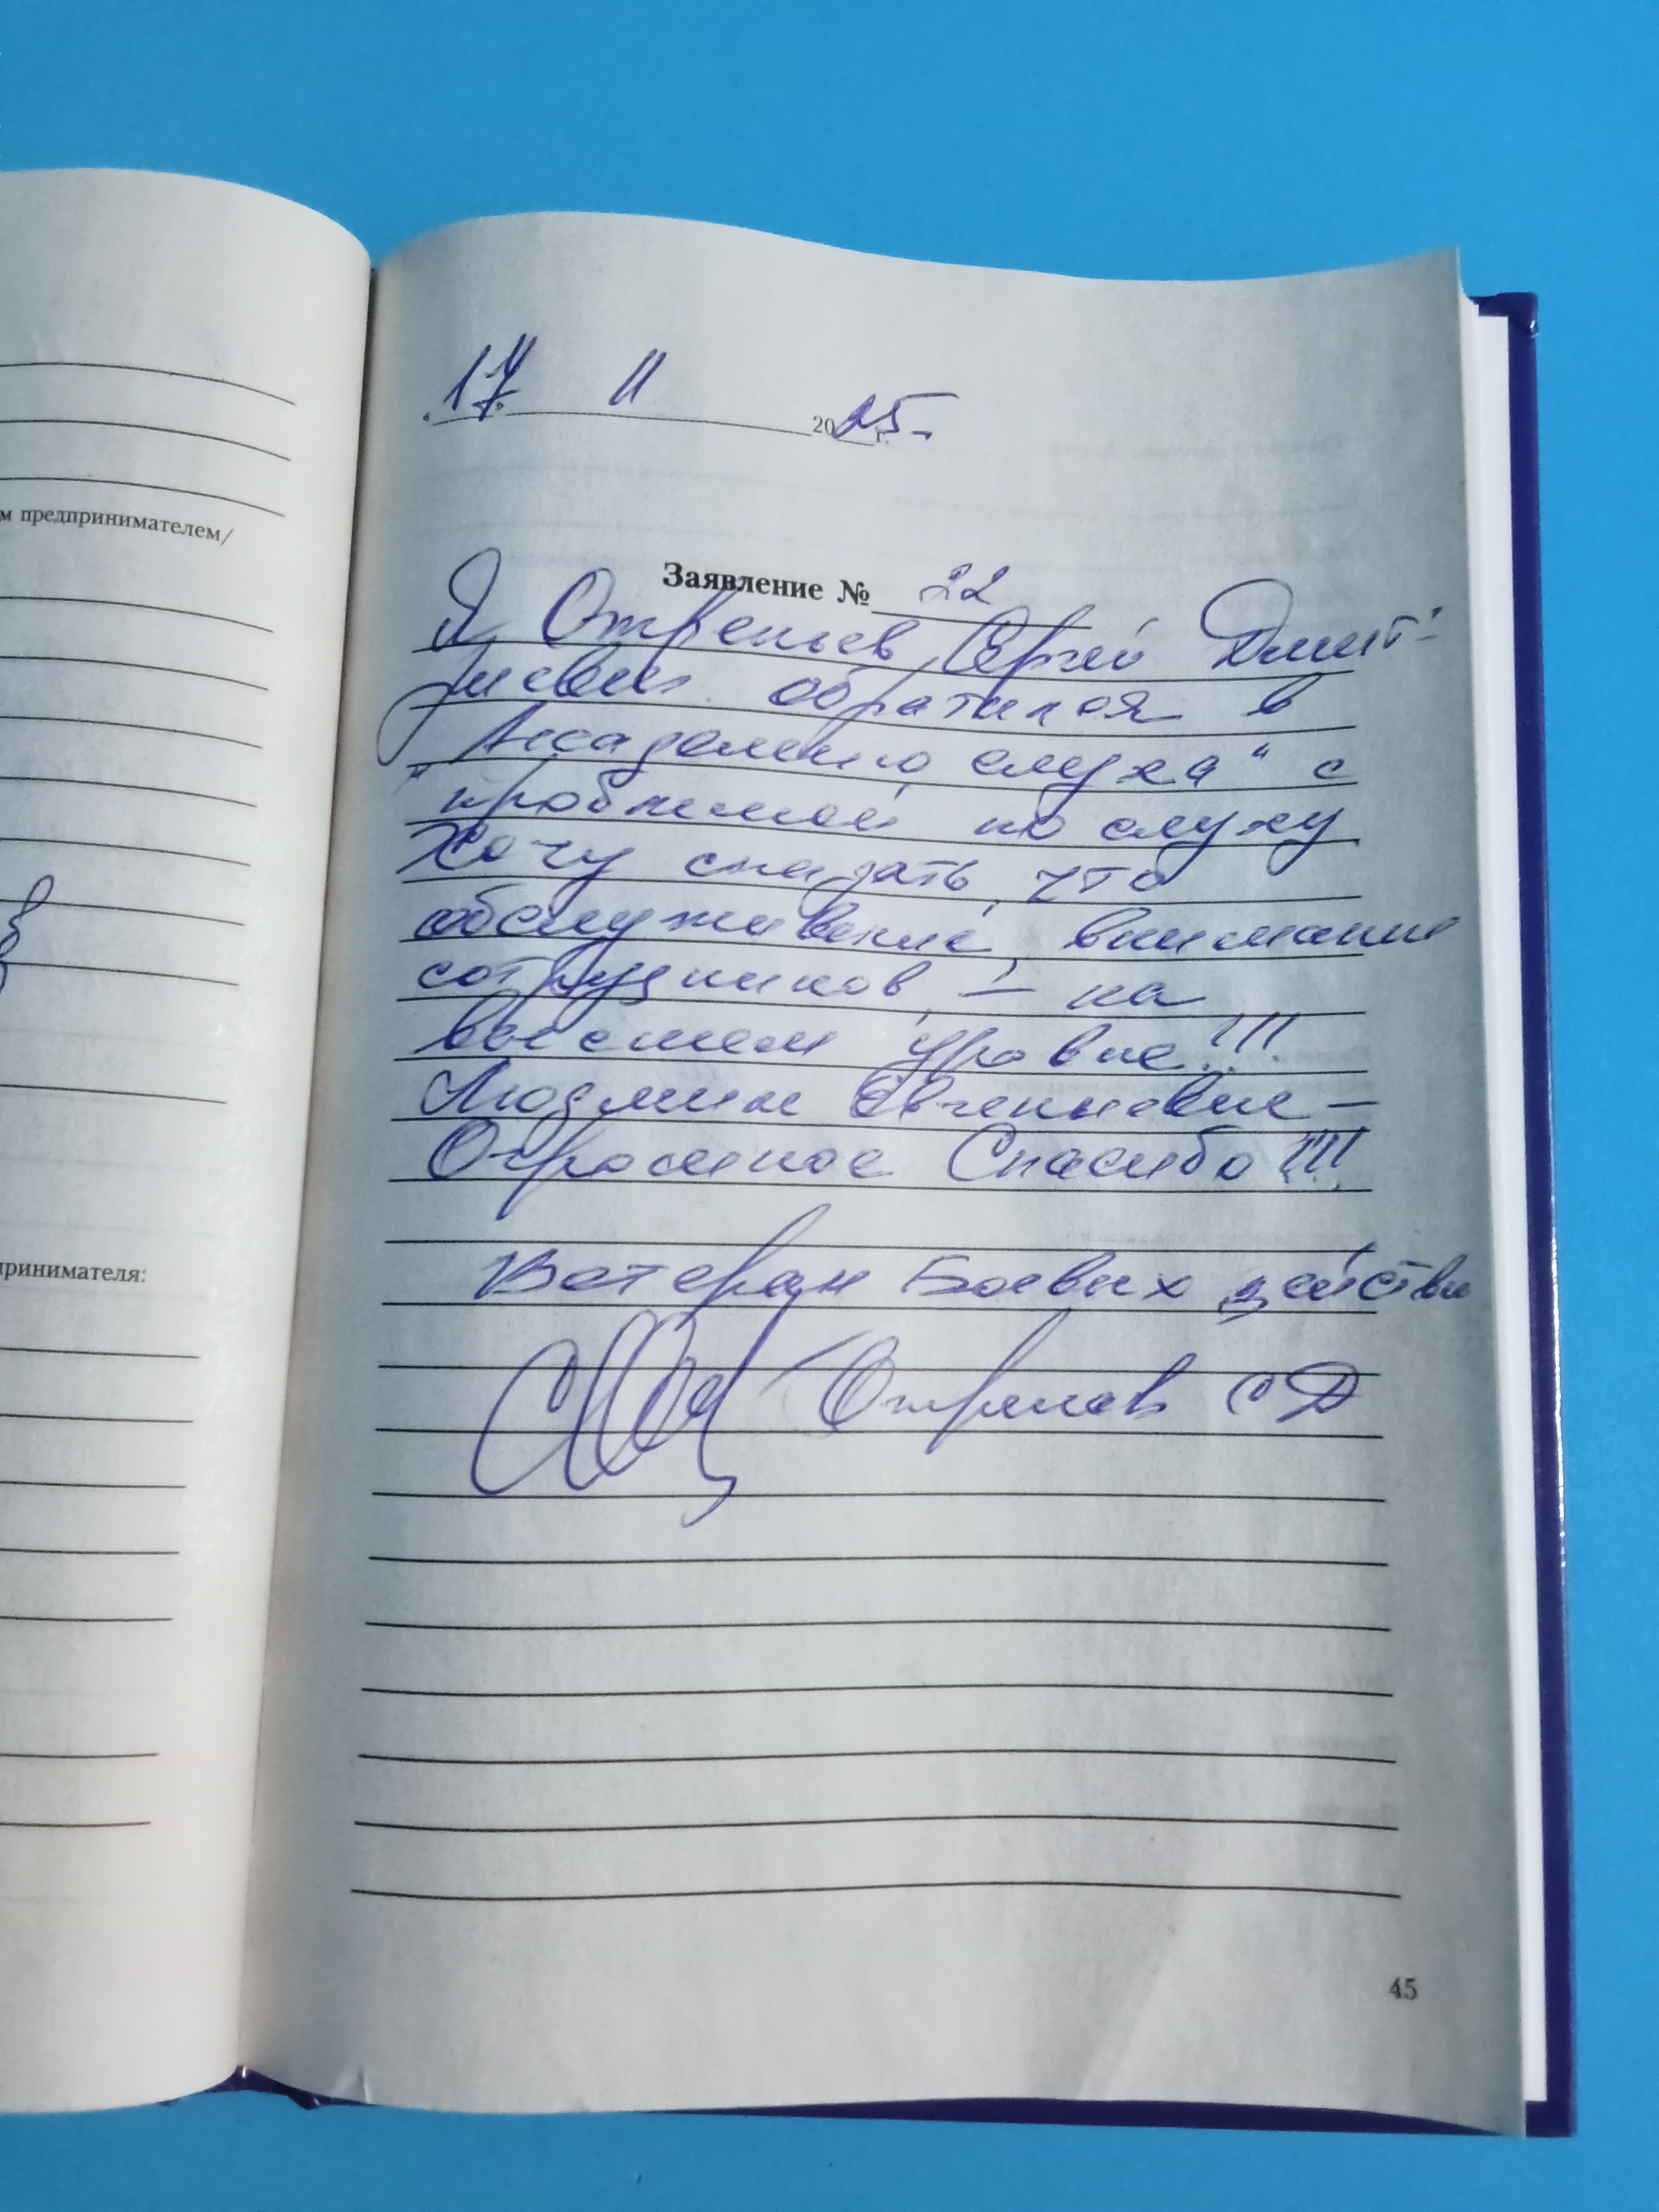 м предпринимателем/
принимателя:
"17" 11 2025 г.
Заявление № 22
Я, Отрепьев Сергей Дмит-
риевич обратился в
"Академию слуха" с
проблемой по слуху
Хочу сказать, что
обслуживание, внимание
сотрудников – на
высшем уровне!!!
Людмиле Евгеньевне –
Огромное Спасибо!!!
Ветеран Боевых действи
Отрепьев С Д
45